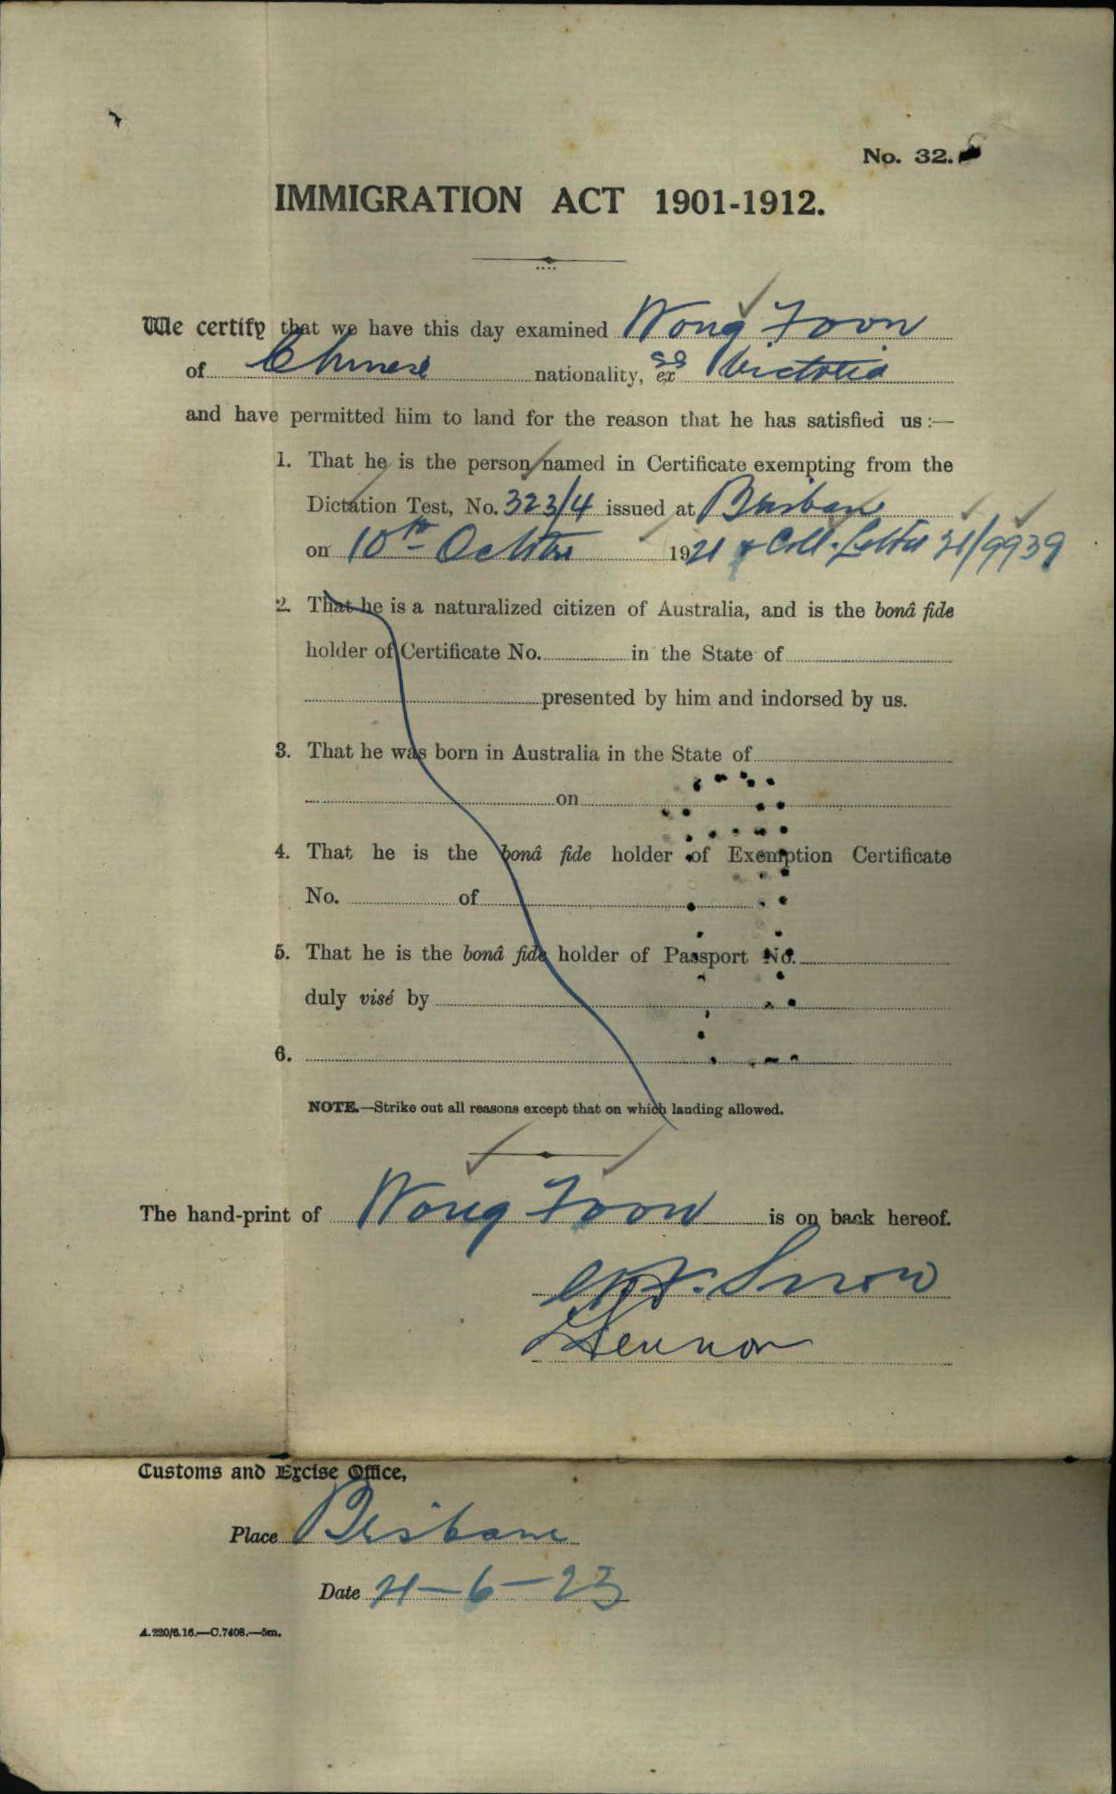 No. 32.
IMMIGRATION ACT 1901-1912.
We certify that we have this day examined Wong Foon
of Chinese nationality, ex SS Victoria
and have permitted him to land for the reason that he has satisfied us:—
1. That he is the person named in Certificate exempting from the
Dictation Test, No. 323/4 issued at Brisbane
on 10th October 1921 & Coll. Letter 21/9939
2. That he is a naturalized citizen of Australia, and is the bonâ fide
holder of Certificate No. in the State of
presented by him and indorsed by us.
3. That he was born in Australia in the State of
on
4. That he is the bonâ fide holder of Exemption Certificate
No. of
5. That he is the bonâ fide holder of Passport No.
duly visé by
6.
NOTE.—Strike out all reasons except that on which landing allowed.
The hand-print of Wong Foon is on back hereof.
Snow
Customs and Excise Office,
Place Brisbane
Date 21-6-23
A.220/6.16.—C.7408.—5m.